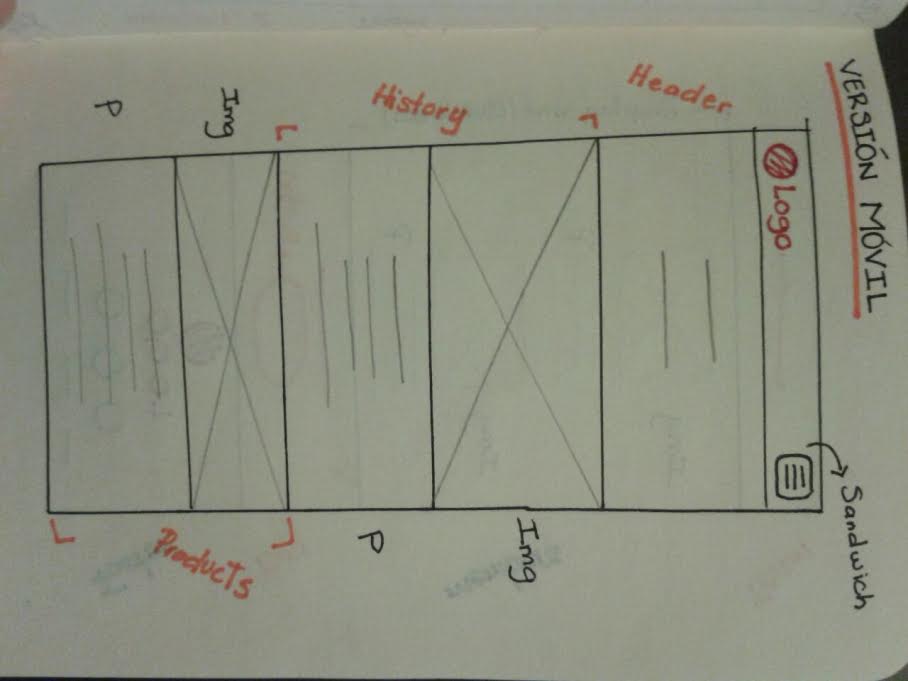 VERSIÓN MÓVIL
Sandwich
Logo
Header
Img
History
P
Img
Products
P